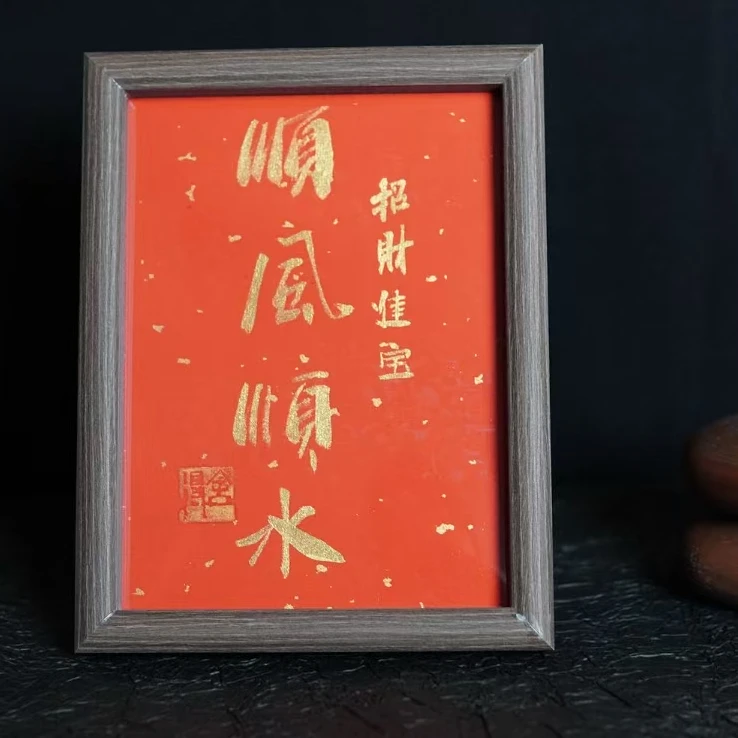 招財進宝
順風順水